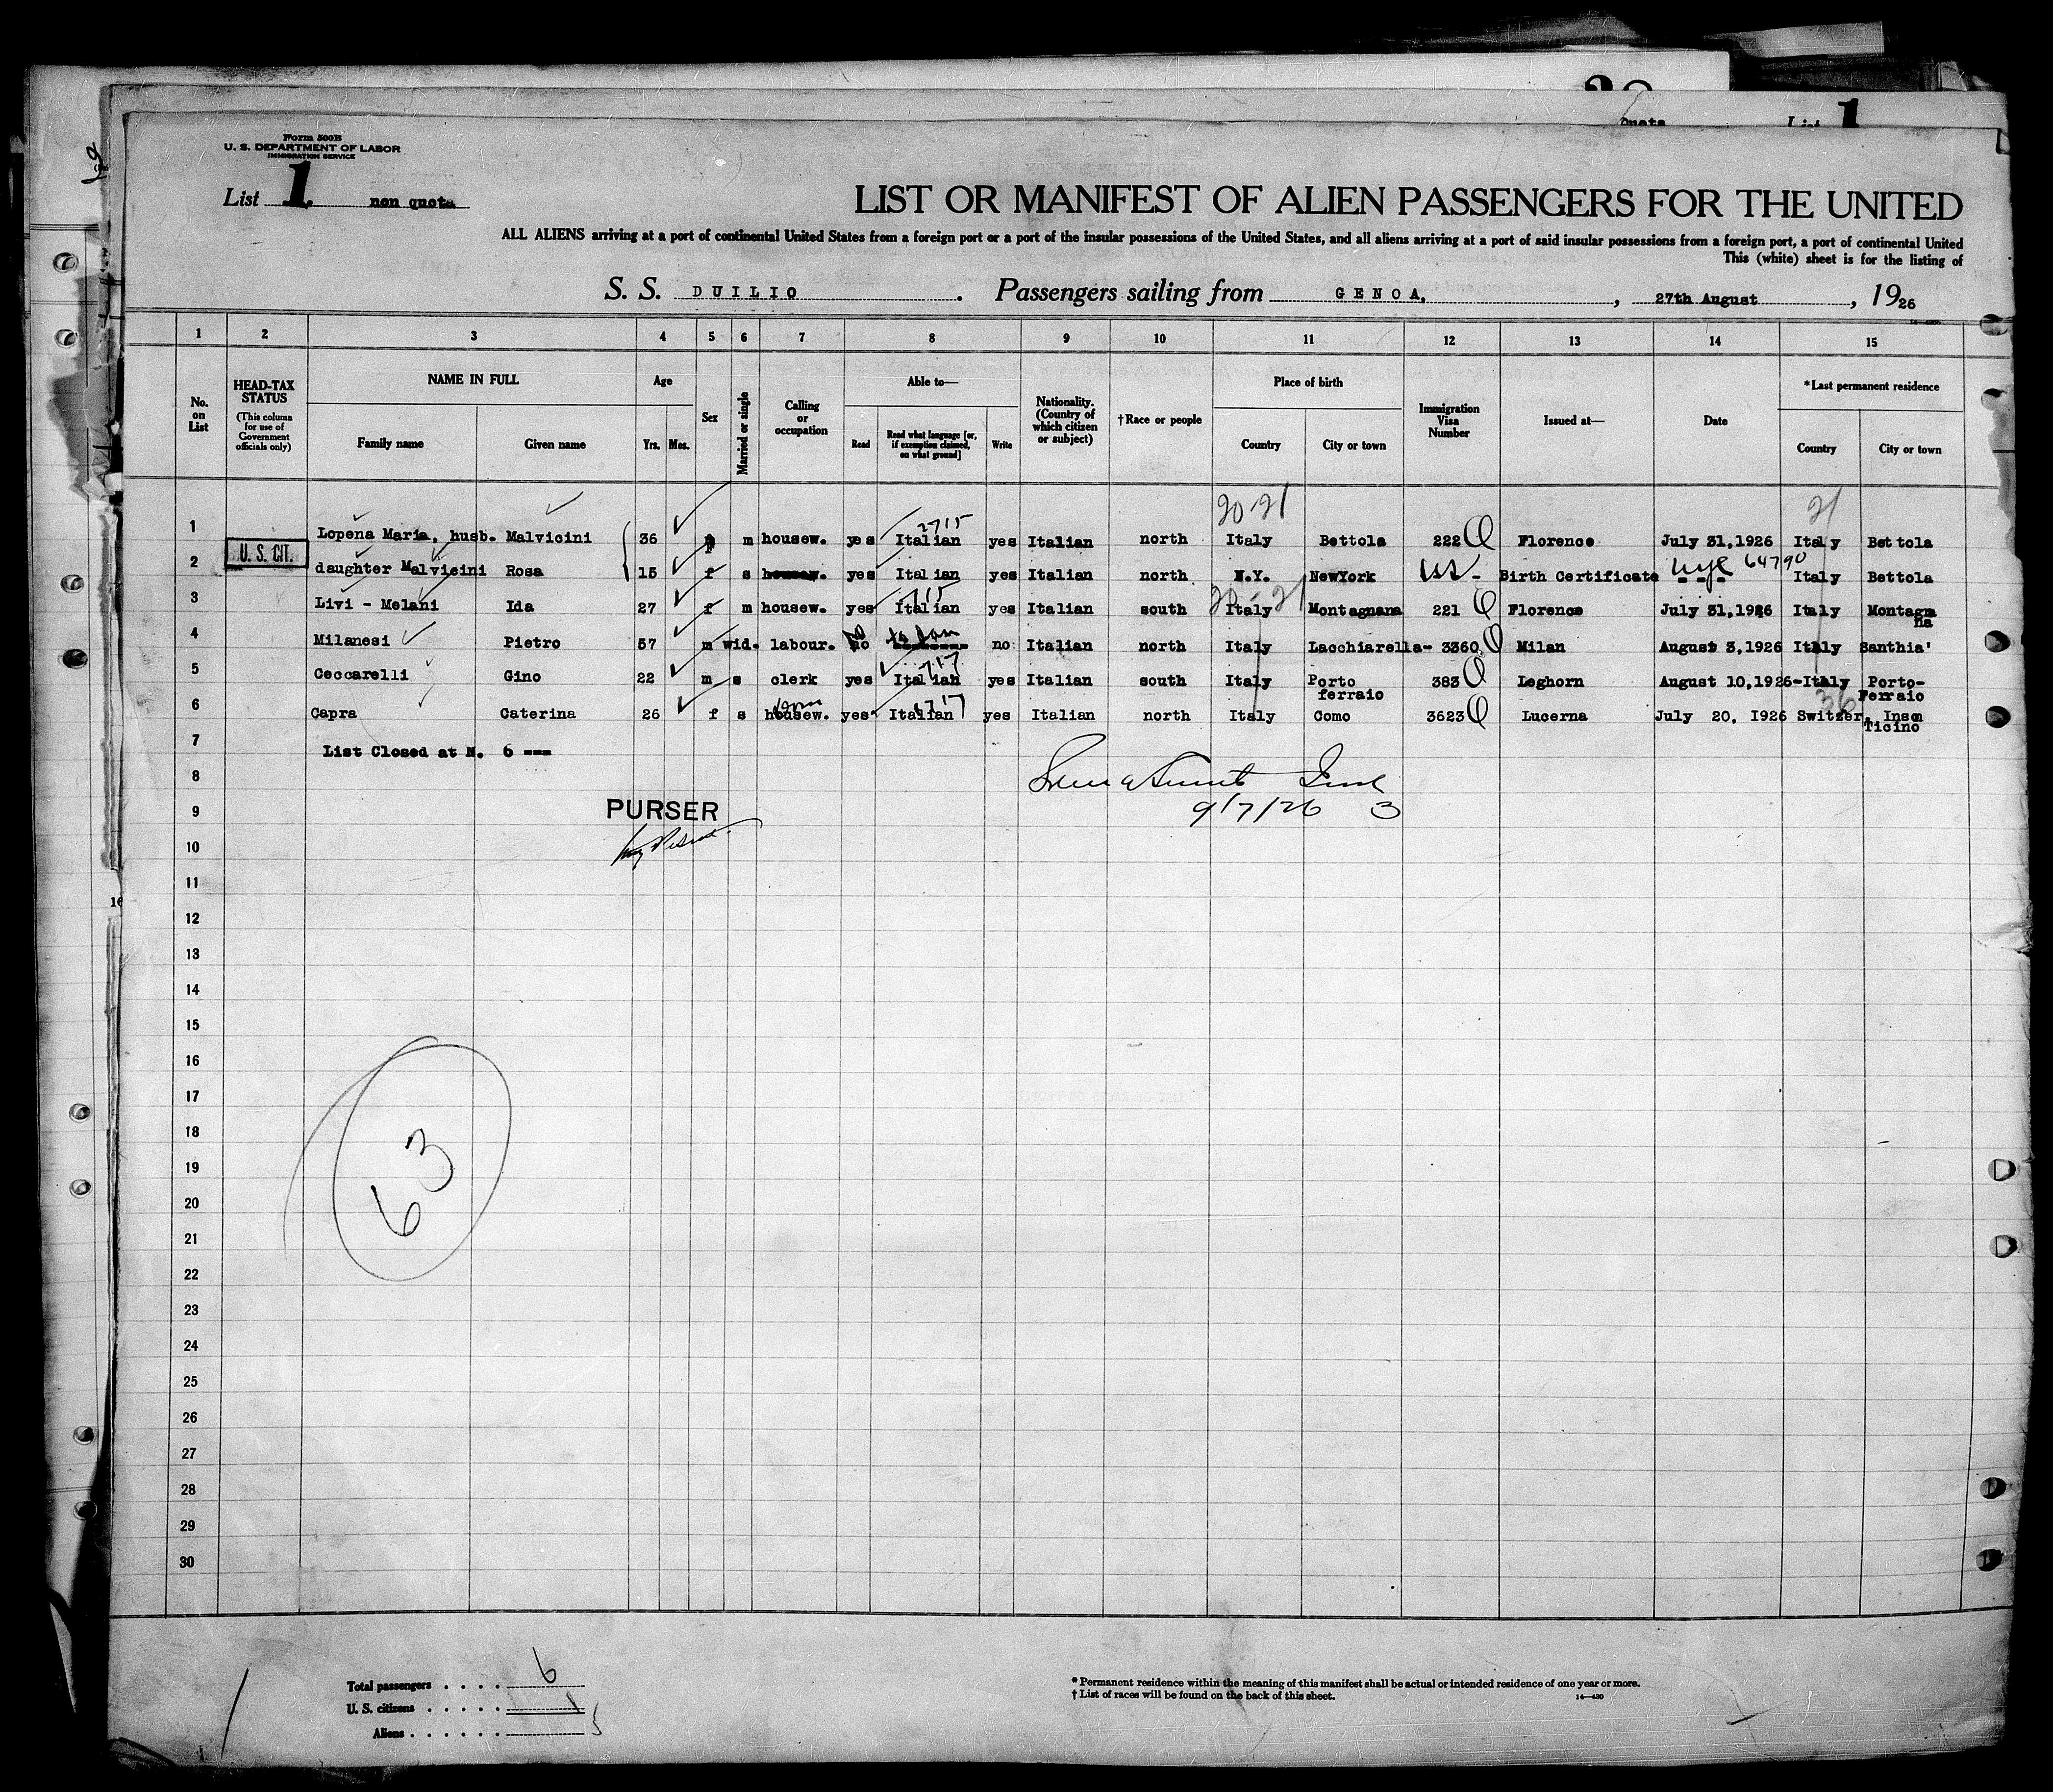 Form 500B
U. S. DEPARTMENT OF LABOR
IMMIGRATION SERVICE
List 1. non quota
Quota List 1
LIST OR MANIFEST OF ALIEN PASSENGERS FOR THE UNITED
ALL ALIENS arriving at a port of continental United States from a foreign port or a port of the insular possessions of the United States, and all aliens arriving at a port of said insular possessions from a foreign port, a port of continental United
This (white) sheet is for the listing of
S. S. DUILIO. Passengers sailing from GENOA, , 27th August , 1926
1 2 3 4 5 6 7 8 9 10 11 12 13 14 15
No. on List
HEAD-TAX STATUS
(This column for use of Government officials only)
NAME IN FULL
Family name
Given name
Age
Yrs. Mos.
Sex
Married or single
Calling or occupation
Able to—
Read
Read what language [or, if exemption claimed, on what ground]
Write
Nationality. (Country of which citizen or subject)
†Race or people
Place of birth
Country
City or town
Immigration Visa Number
Issued at—
Date
*Last permanent residence
Country
City or town
20-21 21
2715
1 Lopena Maria, husb. Malvicini 36 f m housew. yes Italian yes Italian north Italy Bettola 222 Florence July 31,1926 Italy Bettola
U. S. CIT.
2 daughter Malvicini Rosa 15 f s housew. yes Italian yes Italian north N.Y. NewYork US- Birth Certificate --- 64790 Italy Bettola
3 Livi - Melani Ida 27 f m housew. yes Italian yes Italian south Italy Montagnana 221 Florence July 31,1926 Italy Montagna
na
4 Milanesi Pietro 57 m wid. labour. no no Italian north Italy Lacchiarella- 3360 Milan August 3,1926 Italy Santhia'
5 Ceccarelli Gino 22 m s clerk yes Italian yes Italian south Italy Porto ferraio 383 Leghorn August 10,1926-Italy Porto-Ferraio
6 Capra Caterina 26 f s housew. yes Italian yes Italian north Italy Como 3623 Lucerna July 20, 1926 Switzer. Inson
Ticino
7 List Closed at N. 6 ---
8
9 PURSER 9/7/26 3
10
11
12
13
14
15
16
17
18
19
20
21
22
23
24
25
26
27
28
29
30
63
Total passengers . . . . 6
U. S. citizens . . . . . 1
Aliens . . . . . . 5
* Permanent residence within the meaning of this manifest shall be actual or intended residence of one year or more.
† List of races will be found on the back of this sheet.
14—430